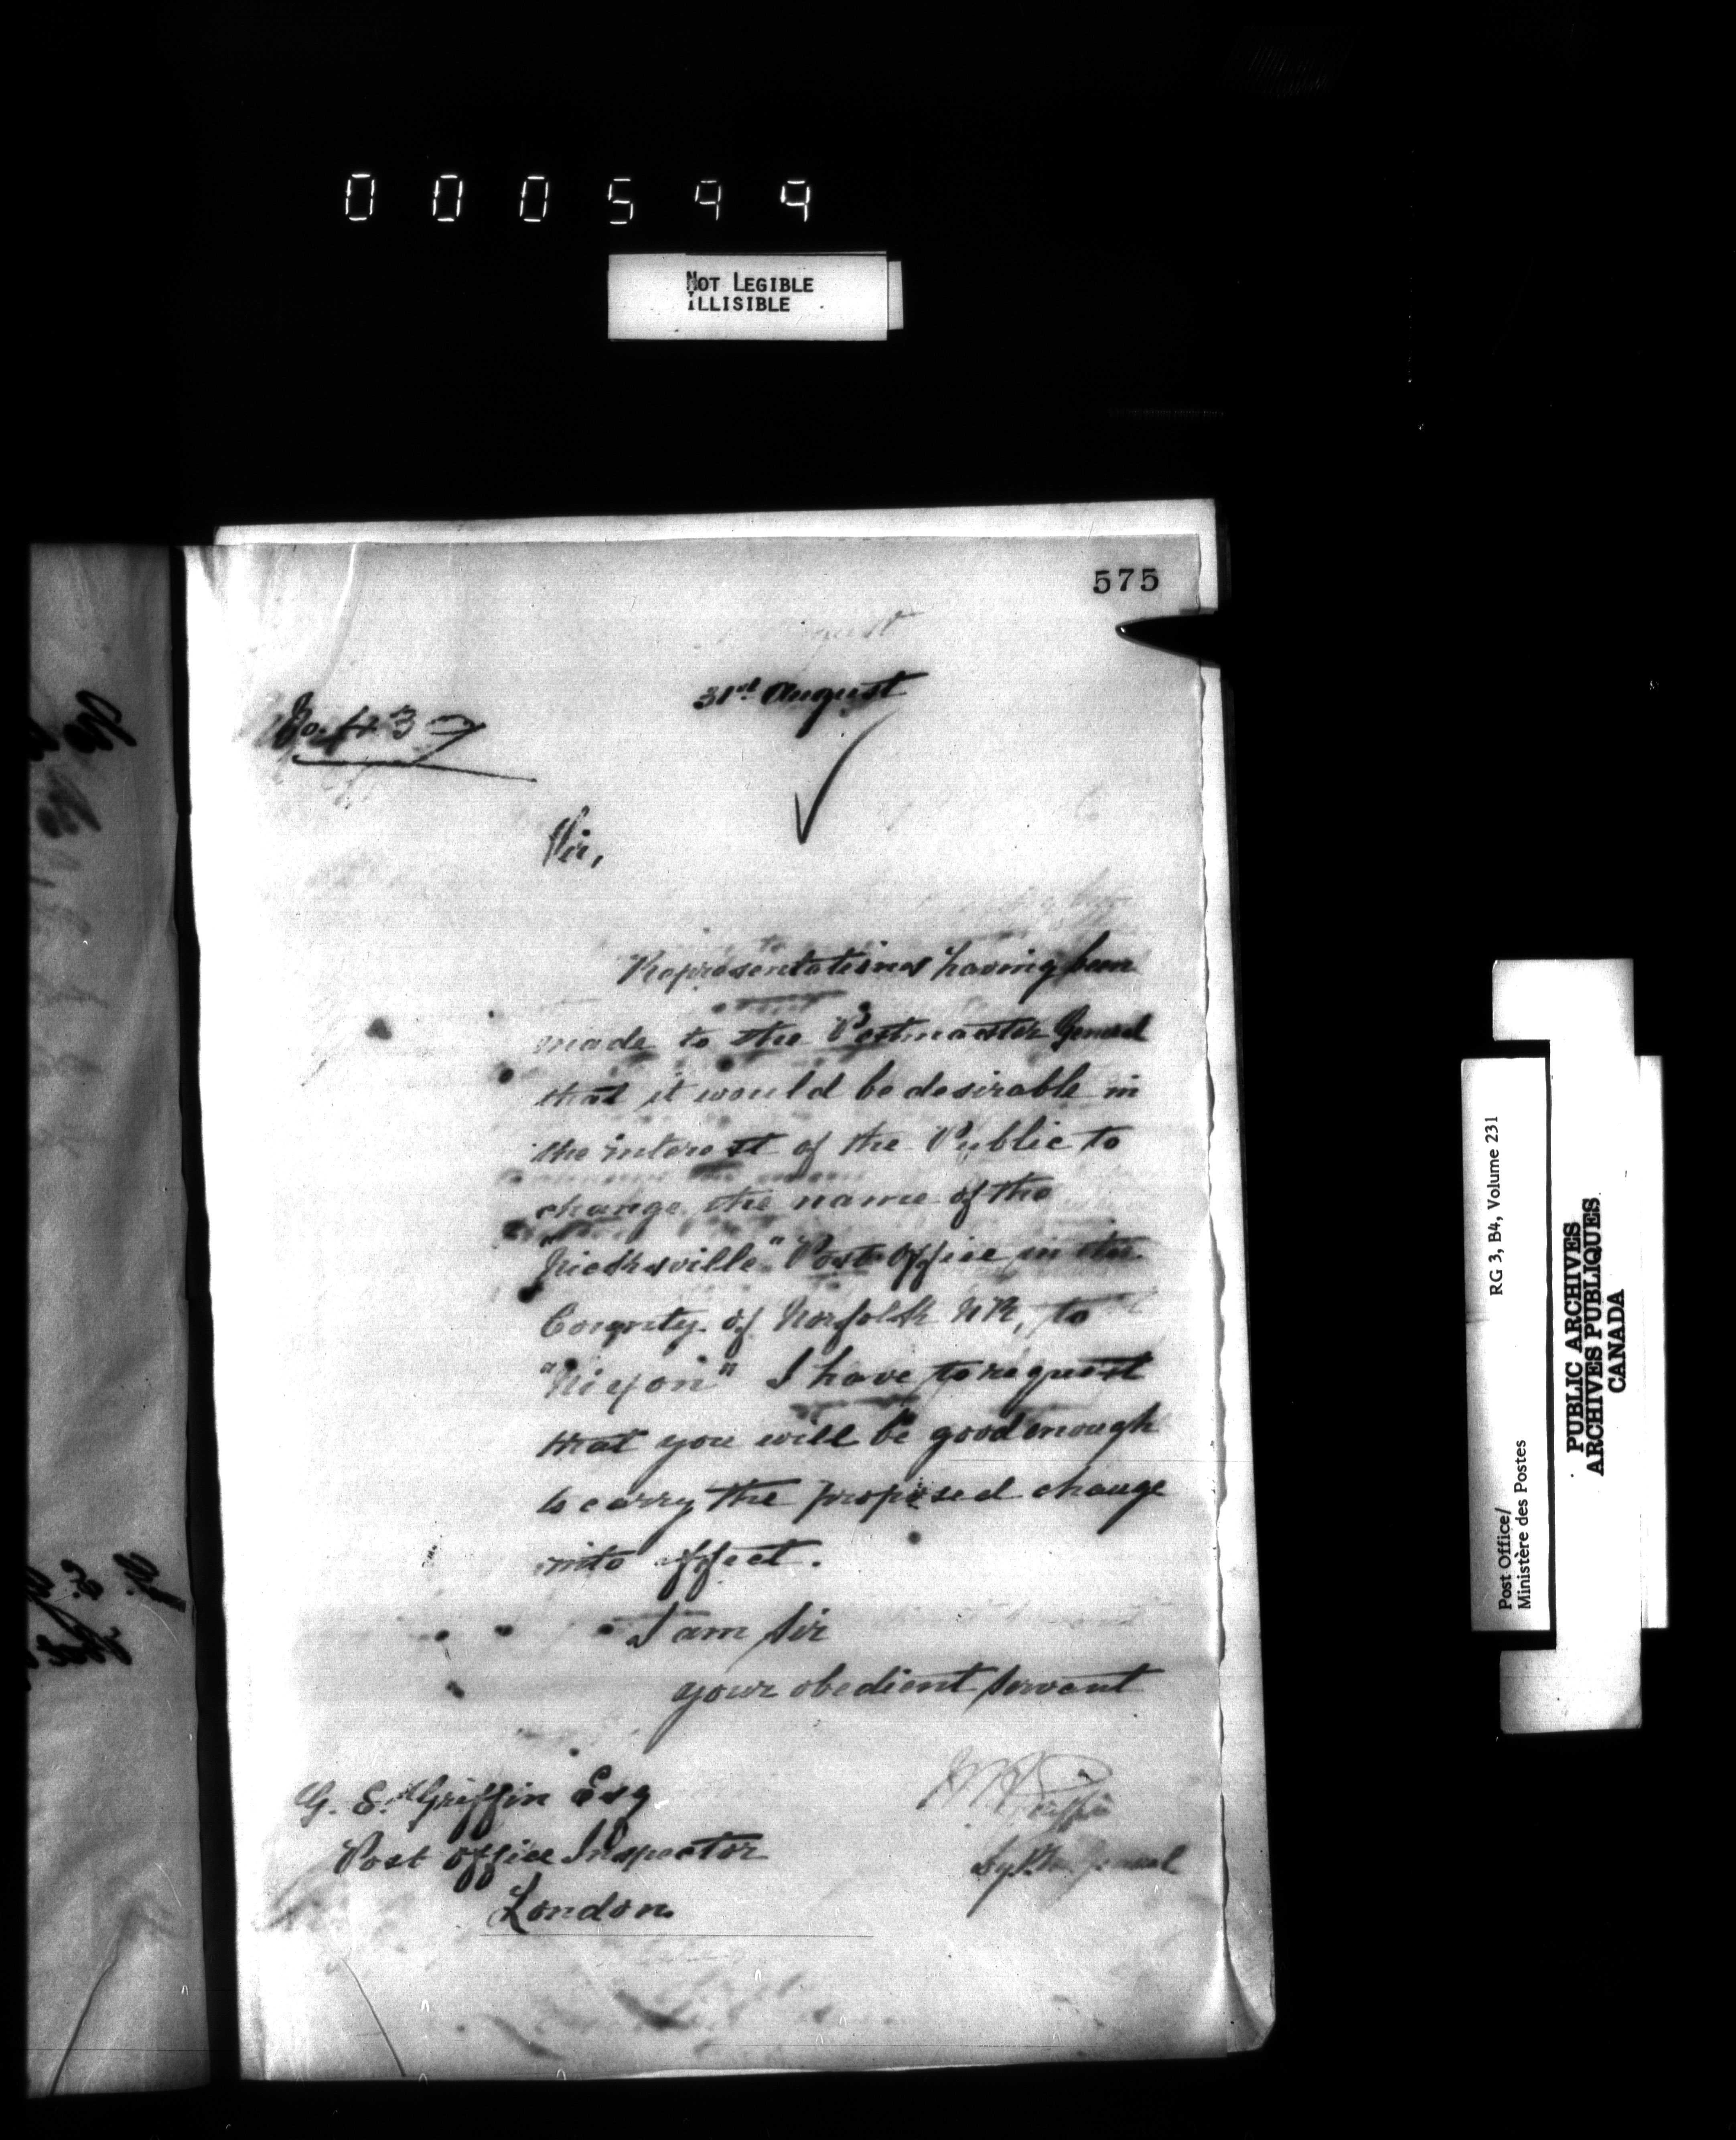 000599
NOT LEGIBLE
ILLISIBLE
575
31st August
No. 437
Sir,
Representations having been
made to the Postmaster General
that it would be desirable in
the interest of the Public to
change the name of the
"Nicksville" Post Office in the
County of Norfolk NR, to
"Nixon" I have to request
that you will be good enough
to carry the proposed change
into effect.
I am Sir
your obedient servant
G. E. Griffin Esq
Post Office Inspector
London.
Dy P.M. General
Post Office/
Ministère des Postes
RG 3, B4, Volume 231
PUBLIC ARCHIVES
ARCHIVES PUBLIQUES
CANADA